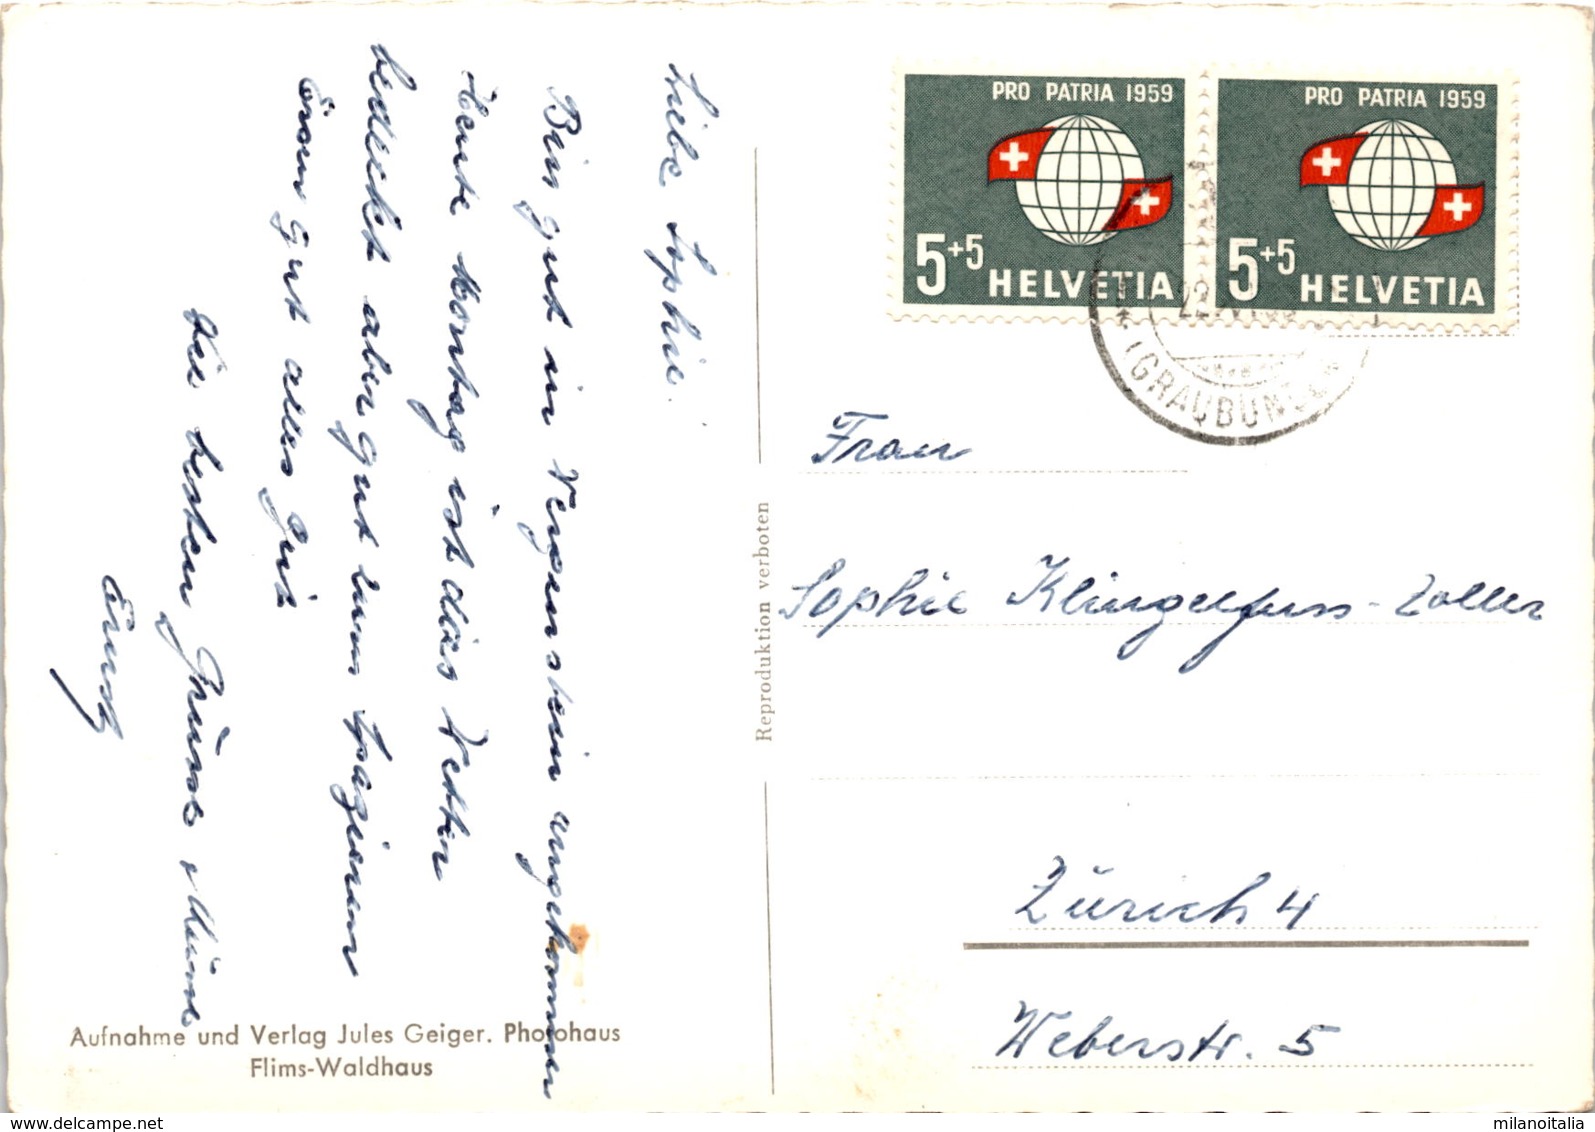 Liebe Sophie.
Bin gut in Tenigerbad angekommen
Heute Montag ist das Wetter
bedeckt aber gut zum Spazieren
gut alles gute
Die besten Grüsse &
Ernst
Aufnahme und Verlag Jules Geiger. Photohaus
Flims-Waldhaus
Reproduktion verboten
PRO PATRIA 1959
5+5
HELVETIA
PRO PATRIA 1959
5+5
HELVETIA
(GRAUBÜNDEN)
Frau
Sophie Klingelfuss-Zoller
Zürich 4
Weberstr. 5
milanoitalia
www.delcampe.net